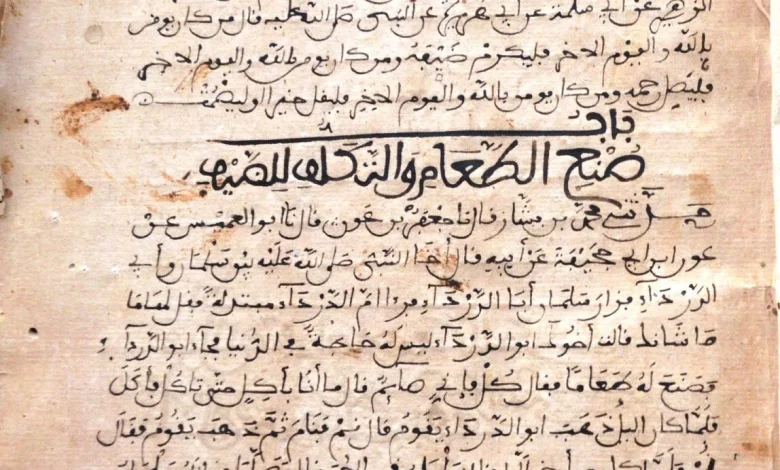 الزهري عن أبي سلمة عن أبي هريرة عن النبي صلى الله عليه قال من كان يومن
بالله واليوم الاخر فليكرم ضيفه ومن كان يومن بالله واليوم الاخر
فليصل رحمه ومن كان يومن بالله واليوم الاخر فليقل خيرا او ليصمت
باب
صُنْعِ الطَّعَامِ وَالتَّكَلُّفِ لِلضَّيْفِ
حدثني محمد بن بشار قال نا جعفر بن عون قال نا ابو العميس عن
عون ابن ابي جحيفة عن أبيه قال آخا النبي صلى الله عليه بين سلمان وأبي
الدرداء فزار سلمان أبا الدرداء فرءا ام الدرداء متبذلة فقال لها ما
شانك قالت أخوك ابو الدرداء ليس له حاجة في الدنيا فجاء ابو الدرداء
فصنع له طعاما فقال كل فإني صائم قال ما أنا بآكل حتى تاكل فأكل
فلما كان اليل ذهب ابو الدرداء يقوم قال نم فنام ثم ذهب يقوم فقال